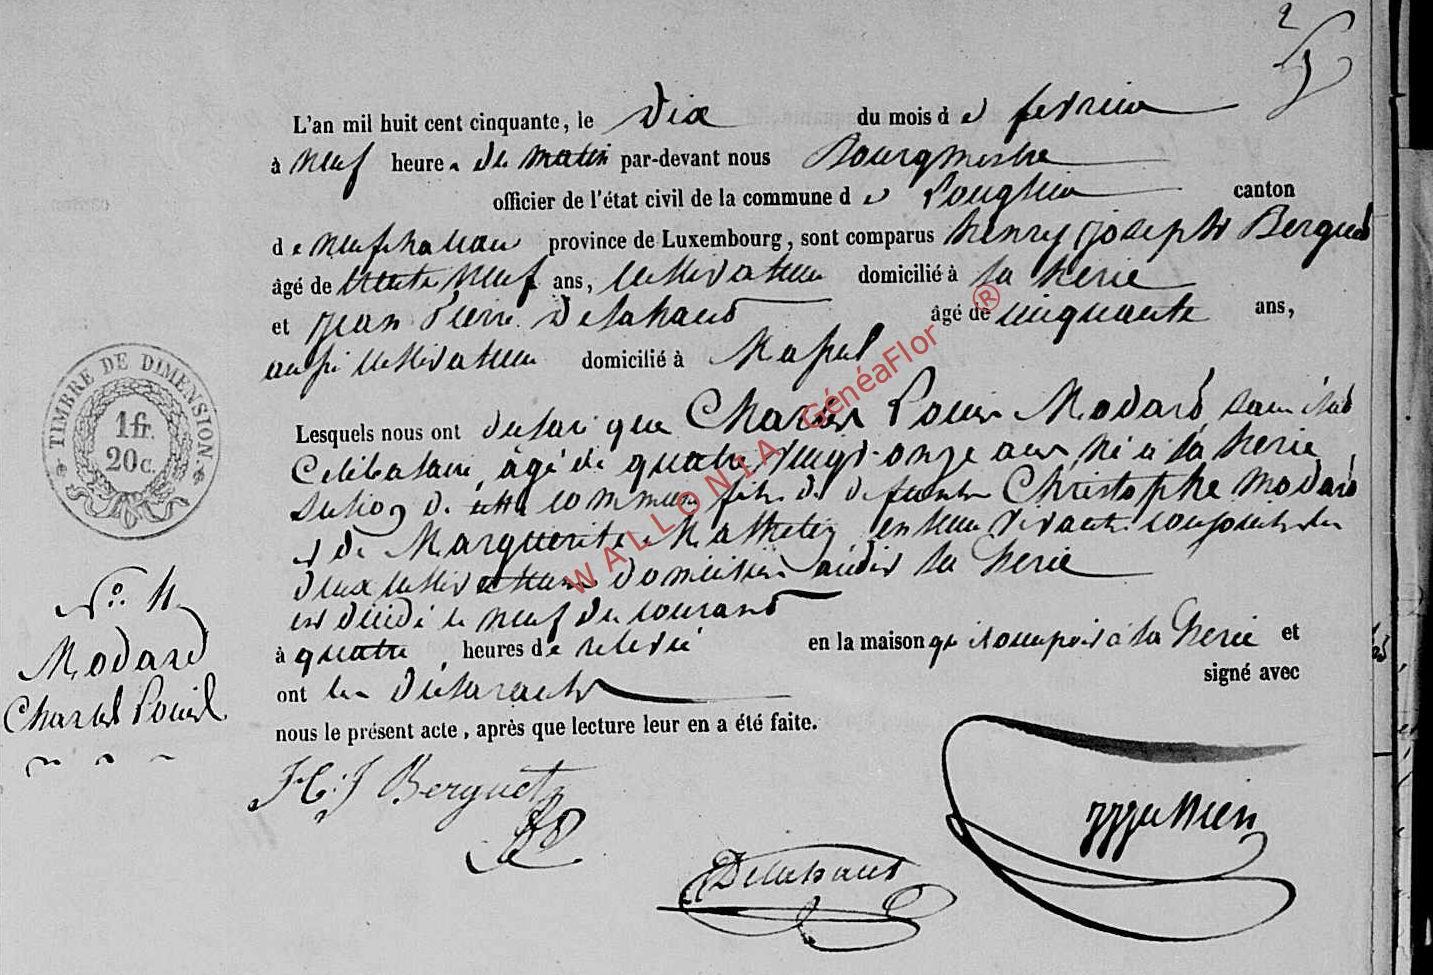 2
L'an mil huit cent cinquante, le Dix du mois d e fevrier
à neuf heures du matin par-devant nous Bourgmestre
officier de l'état civil de la commune d e Longlier canton
d e neufchateau province de Luxembourg, sont comparus henry joseph Berguet
âgé de trente neuf ans, cultivateur domicilié à la herie
et jean Pierre Delahaut âgé de cinquante ans,
aussi cultivateur domicilié à Massul
Lesquels nous ont declaré que Charles Louis Modard, sans état
Celibataire, âgé de quatre vingt-onze ans né à la herie
section de cette commune fils de defunts Christophe Modard
et de Marguerite Mathelin en leur vivant conjoints
deux cultivateurs domiciliés audit la herie
est décédé le neuf du courant
à quatre heures de relevée en la maison qu'il occupoit à la herie et
ont les déclarants signé avec
nous le présent acte, après que lecture leur en a été faite.
H: J Berguet
Delahaut
TIMBRE DE DIMENSION
1 fr.
20 c.
No. 11
Modard
Charles Louis
WALLONIA GénéaFlor ®